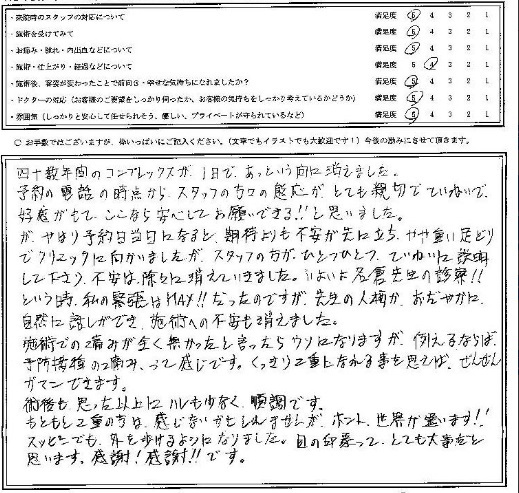 ・来院時のスタッフの対応について 満足度 5 4 3 2 1
・施術を受けてみて 満足度 5 4 3 2 1
・お痛み・腫れ・内出血などについて 満足度 5 4 3 2 1
・施術・仕上がり・経過などについて 満足度 5 4 3 2 1
・施術後、容姿が変わったことで前向き・幸せな気持ちになれましたか? 満足度 5 4 3 2 1
・ドクターの対応(お客様のご要望をしっかり伺ったか、お客様の気持ちをしっかり考えているかどうか) 満足度 5 4 3 2 1
・雰囲気(しっかりと安心して任せられそう、優しい、プライベートが守られているなど) 満足度 5 4 3 2 1
○ お手数ではございますが、枠いっぱいにご記入ください。(文章でもイラストでも大歓迎です!)今後の励みにさせて頂きます。
四十数年間のコンプレックスが、1日で、あっという間に消えました。
予約の電話の時点から、スタッフの方の感応が、とても親切でていねいで、
好感がもて、ここなら安心してお願いできる!!と思いました。
が、やはり予約日当日になると、期待よりも不安が先に立ち、やや重い足どり
でクリニックに向かいましたが、スタッフの方が、ひとつひとつ、ていねいに説明
して下さり、不安は、除々に消えていきました。いよいよ名倉先生の診察!!
という時、私の緊張はMAX!!だったのですが、先生の人柄か、おだやかに、
自然に話しができ、施術への不安も消えました。
施術での痛みが全く無かったと言ったらウソになりますが、例えるならば、
予防接種の痛み、って感じです。くっきり二重になれる事を思えば、ぜんぜん
ガマンできます。
術後も思った以上にハレも少なく、順調です。
もともと二重の方は、感じないかもしれませんが、ホント、世界が違います!!
スッピンでも、外を歩けるようになりました。目の印象って、とても大事だと
思います。感謝!感謝!!です。